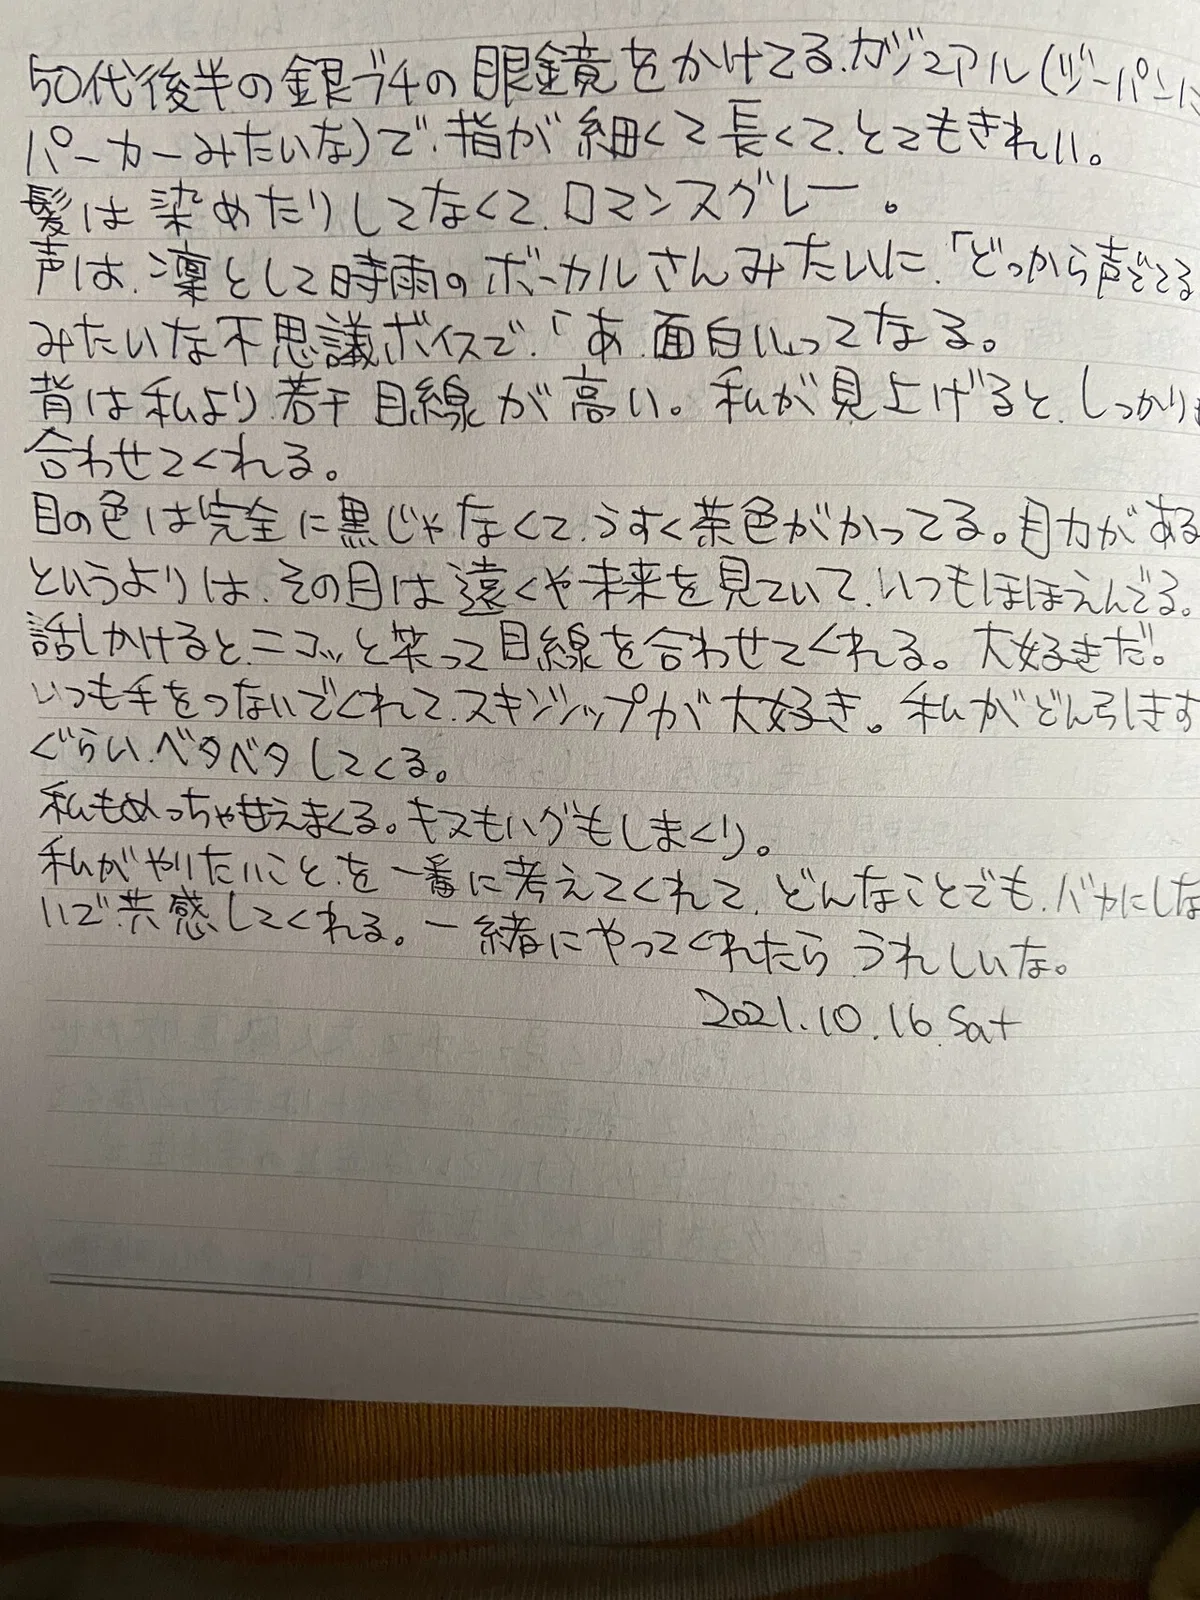 50代後半の銀ブチの眼鏡をかけてる.カジュアル(ジーパンに
パーカーみたいな)で.指が細くて長くて.とてもきれい。
髪は染めたりしてなくて.ロマンスグレー。
声は.凛として時雨のボーカルさんみたいに.「どっから声でてる
みたいな不思議ボイスで.「あ.面白いってなる。
背は私より.若干目線が高い。私が見上げると.しっかり
合わせてくれる。
目の色は完全に黒じゃなくて.うすく茶色がかってる。目力がある
というよりは.その目は遠くや未来を見ていて.いつもほほえんでる。
話しかけると.ニコッと笑って目線を合わせてくれる。大好きだ。
いつも手をつないでくれて.スキンシップが大好き。私がどん引きす
ぐらい.ベタベタしてくる。
私もめっちゃ甘えまくる。キスもハグもしまくり。
私がやりたいこと.を一番に考えてくれて.どんなことでも.バカにしな
いで.共感してくれる。一緒にやってくれたらうれしいな。
2021.10.16.Sat